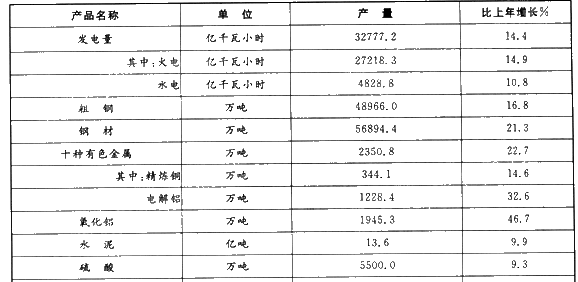 产品名称 单 位 产 量 比上年增长%
发电量 亿千瓦小时 32777.2 14.4
其中:火电 亿千瓦小时 27218.3 14.9
水电 亿千瓦小时 4828.8 10.8
粗 钢 万吨 48966.0 16.8
钢 材 万吨 56894.4 21.3
十种有色金属 万吨 2350.8 22.7
其中:精炼铜 万吨 344.1 14.6
电解铝 万吨 1228.4 32.6
氧化铝 万吨 1945.3 46.7
水 泥 亿吨 13.6 9.9
硫 酸 万吨 5500.0 9.3